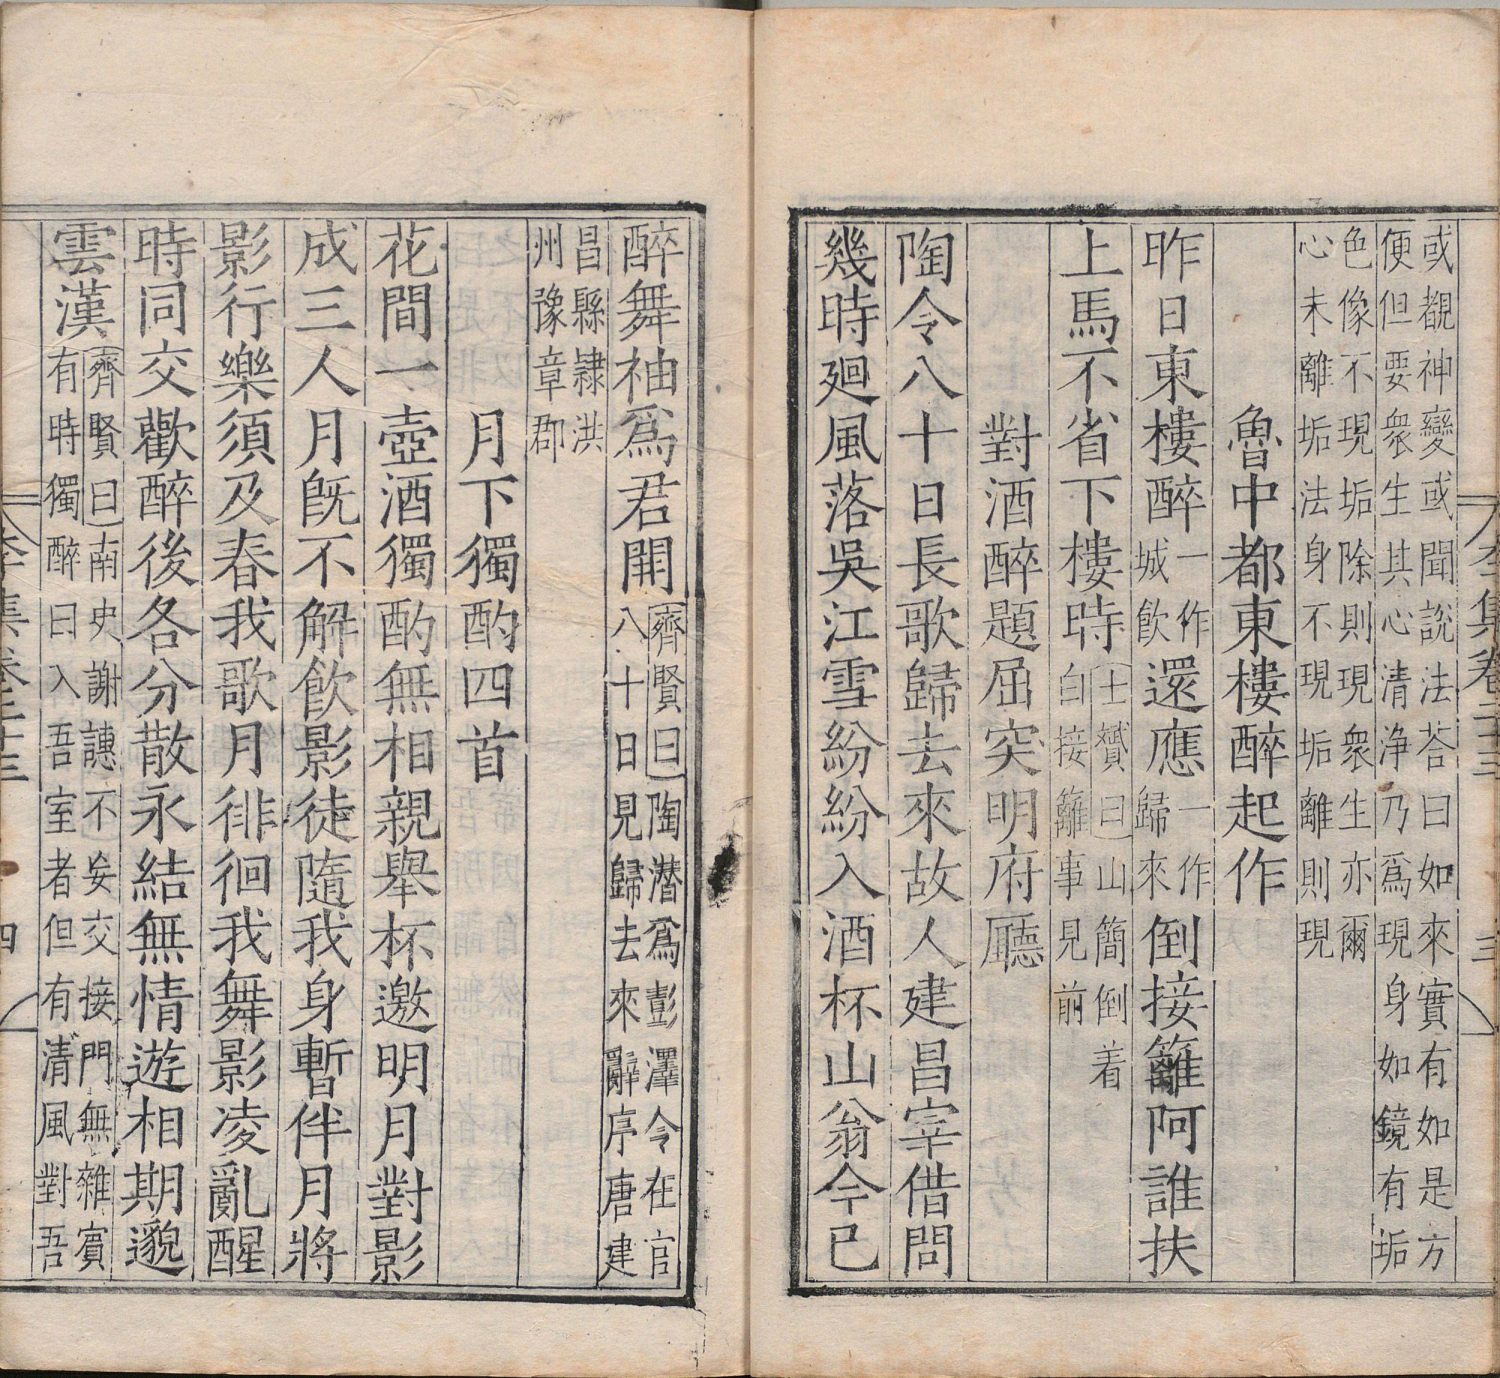 或覩神變或聞説法荅曰如來實有如是方
便但要衆生其心清淨乃爲現身如鏡有垢
色像不現垢除則現衆生亦爾
心未離垢法身不現垢離則現
魯中都東樓醉起作
昨日東樓醉一作城飲還應一作歸來倒接籬阿誰扶
上馬不省下樓時士贇曰山簡倒着白接籬事見前
對酒醉題屈突明府廳
陶令八十日長歌歸去來故人建昌宰借問
幾時廻風落吳江雪紛紛入酒杯山翁今已
醉舞袖爲君開齊賢曰陶潛爲彭澤令在官八十日見歸去來辭序唐建
昌縣隸洪州豫章郡
月下獨酌四首
花間一壺酒獨酌無相親舉杯邀明月對影
成三人月旣不解飲影徒隨我身暫伴月將
影行樂須及春我歌月徘徊我舞影凌亂醒
時同交歡醉後各分散永結無情遊相期邈
雲漢齊賢曰南史謝譓不妄交接門無雜賓有時獨醉曰入吾室者但有清風對吾